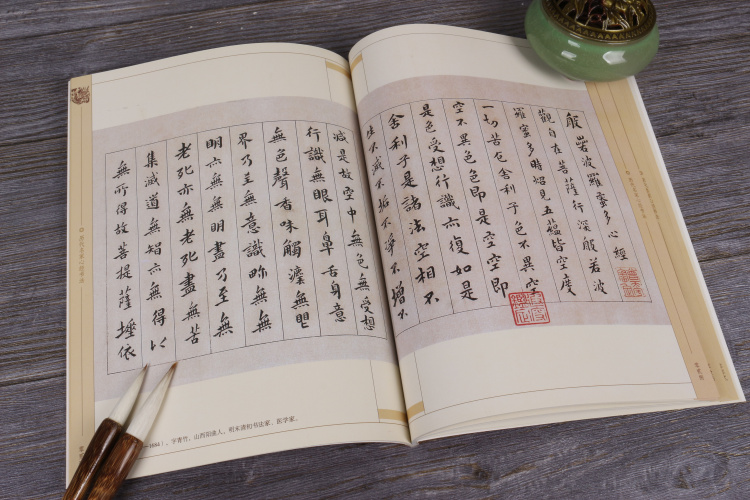 般若波羅蜜多心經
觀自在菩薩行深般若波
羅蜜多時炤見五蘊皆空度
一切苦厄舍利子色不異空
空不異色色即是空空即
是色受想行識亦復如是
舍利子是諸法空相不
生不滅不垢不淨不增不
減是故空中無色無受想
行識無眼耳鼻舌身意
無色聲香味觸灋無眼
界乃至無意識眎無無
明亦無無明盡乃至無
老死亦無老死盡無苦
集滅道無智亦無得以
無所得故菩提薩埵依
—1684），字青竹，山西阳曲人，明末清初书法家、医学家。